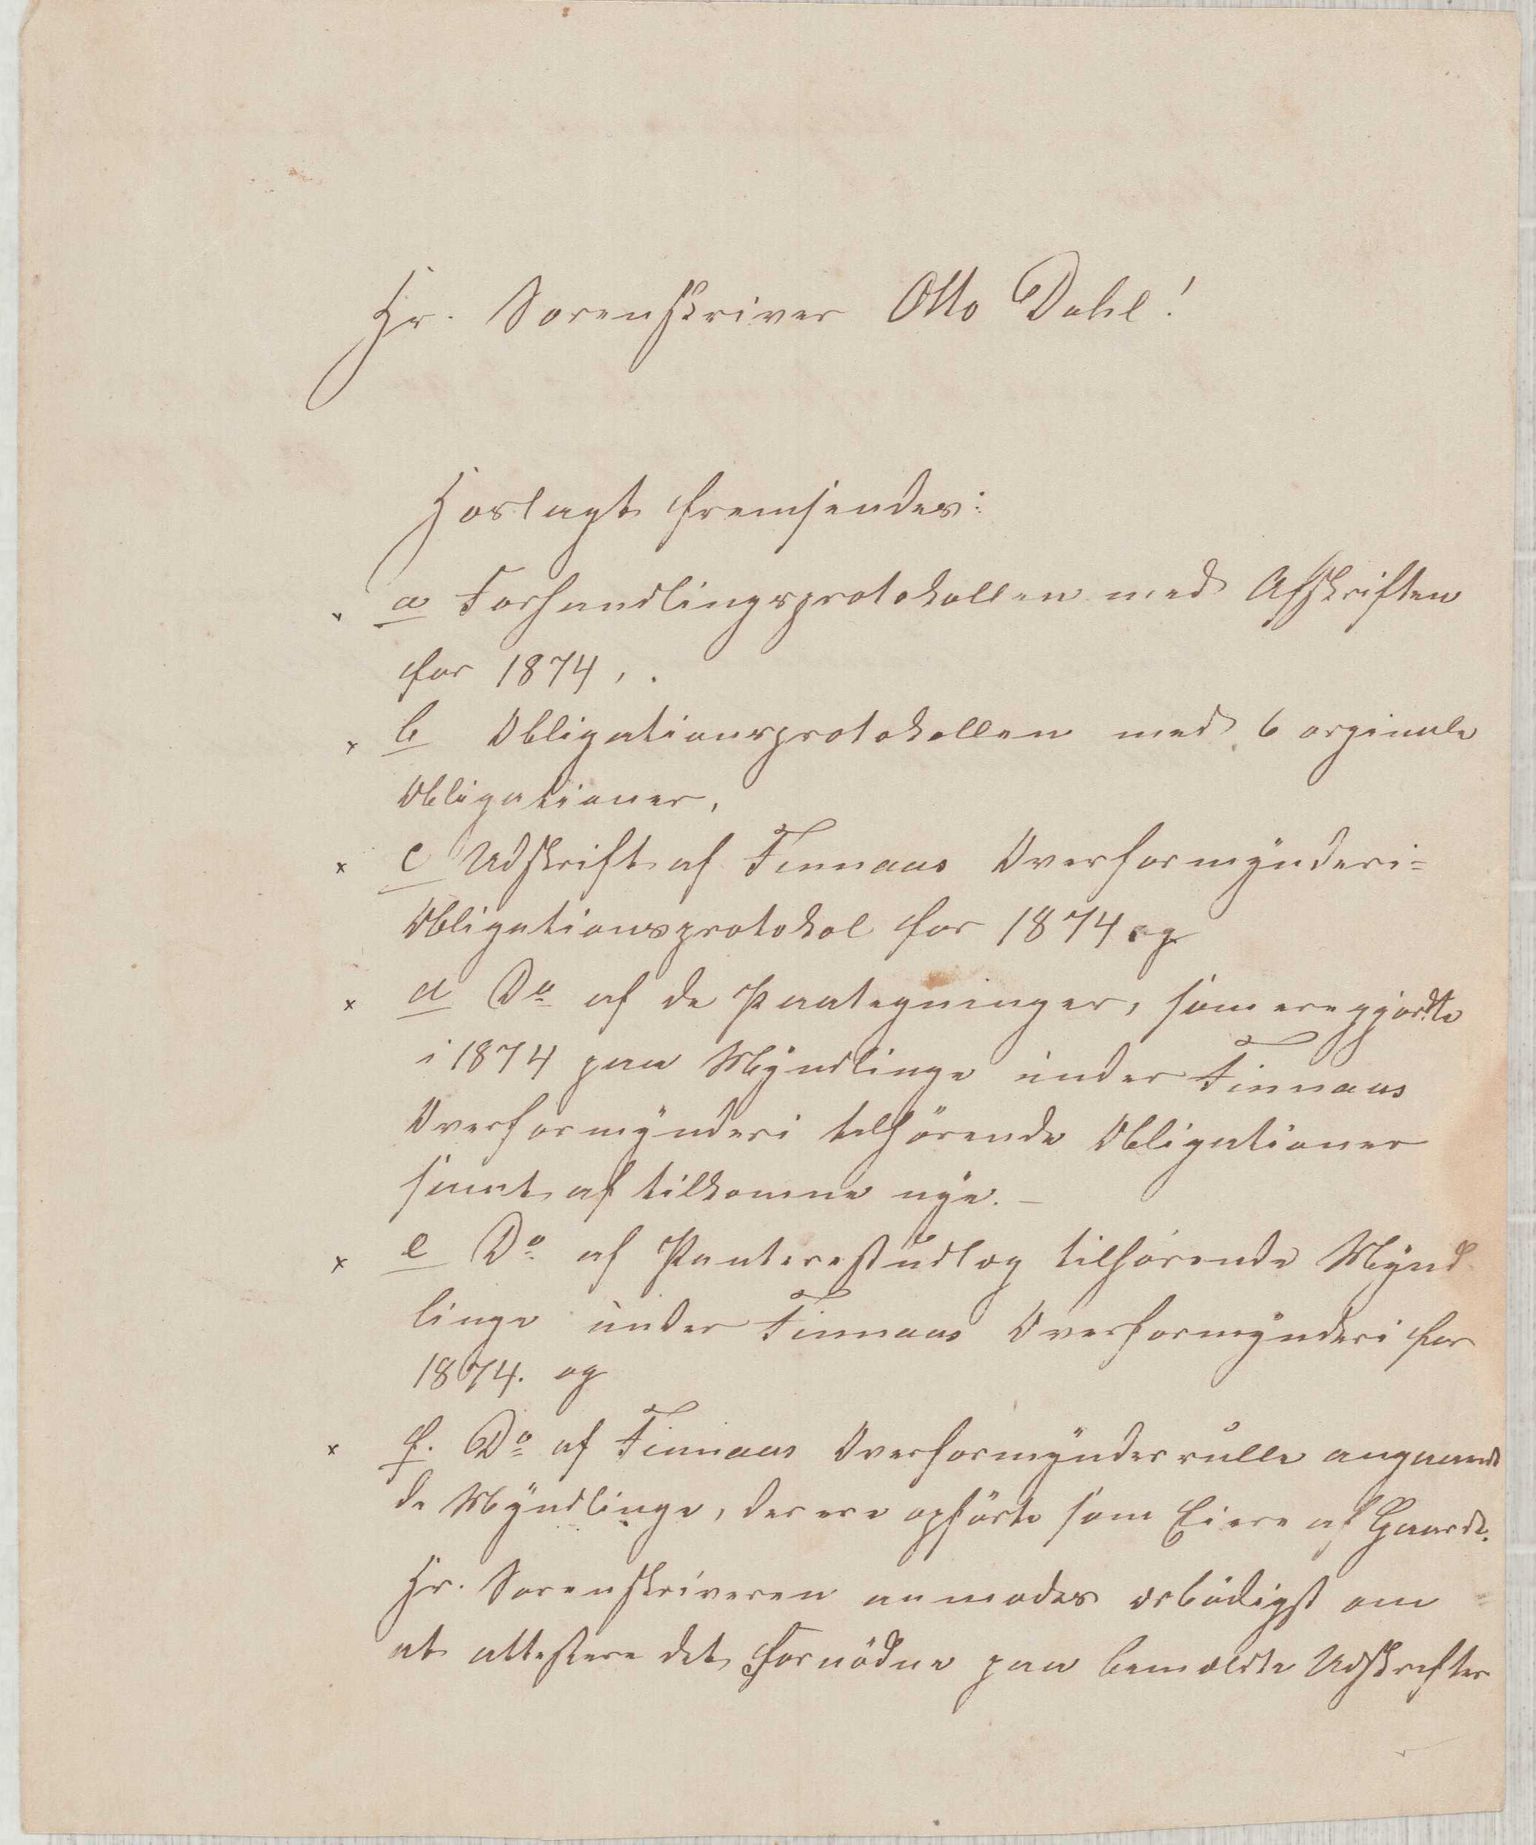 Hr. Sorenskriver Otto Dahl!
Hoslagt fremsendes:
a Forhandlingsprotokollen med Afskriften
for 1874,.
x b Obligationsprotokollen med 6 orginale
Obligationer,
x c Udskrift af Finnaas Overformynderi-
Obligationsprotokol for 1874 og
x d Do af de Paategninger, som ere gjordte
i 1874 paa Myndlinge under Finnaas
Overformynderi tilhörende Obligationer
samt af tilkomne nye. –
x e Do af Panterestudlæg tilhörende Mynd
linge under Finnaas Overformynderi for
1874. og
x f. Do af Finnaas Overformynderrulle angaaend
de Myndlinge, der ere opförte som Eiere af Gaarde.
Hr. Sorenskriveren anmodes ærbödigst om
at attestere det fornödne paa bemeldte Udskrifter